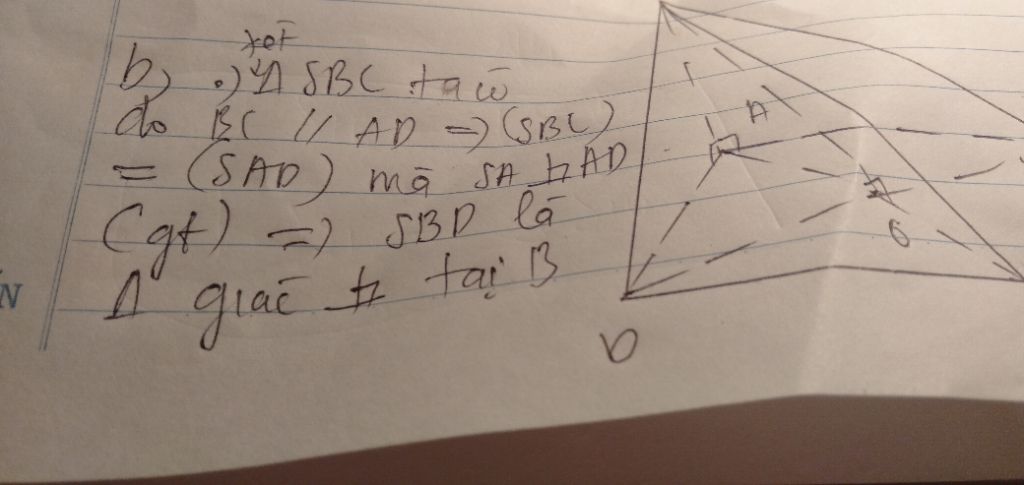 xét
b) •) Δ SBC ta có
do BC // AD => (SBC)
= (SAD) mà SA ⊥ AD
(gt) => SBD là
Δ giác ⊥ tại B
A
O
D
N